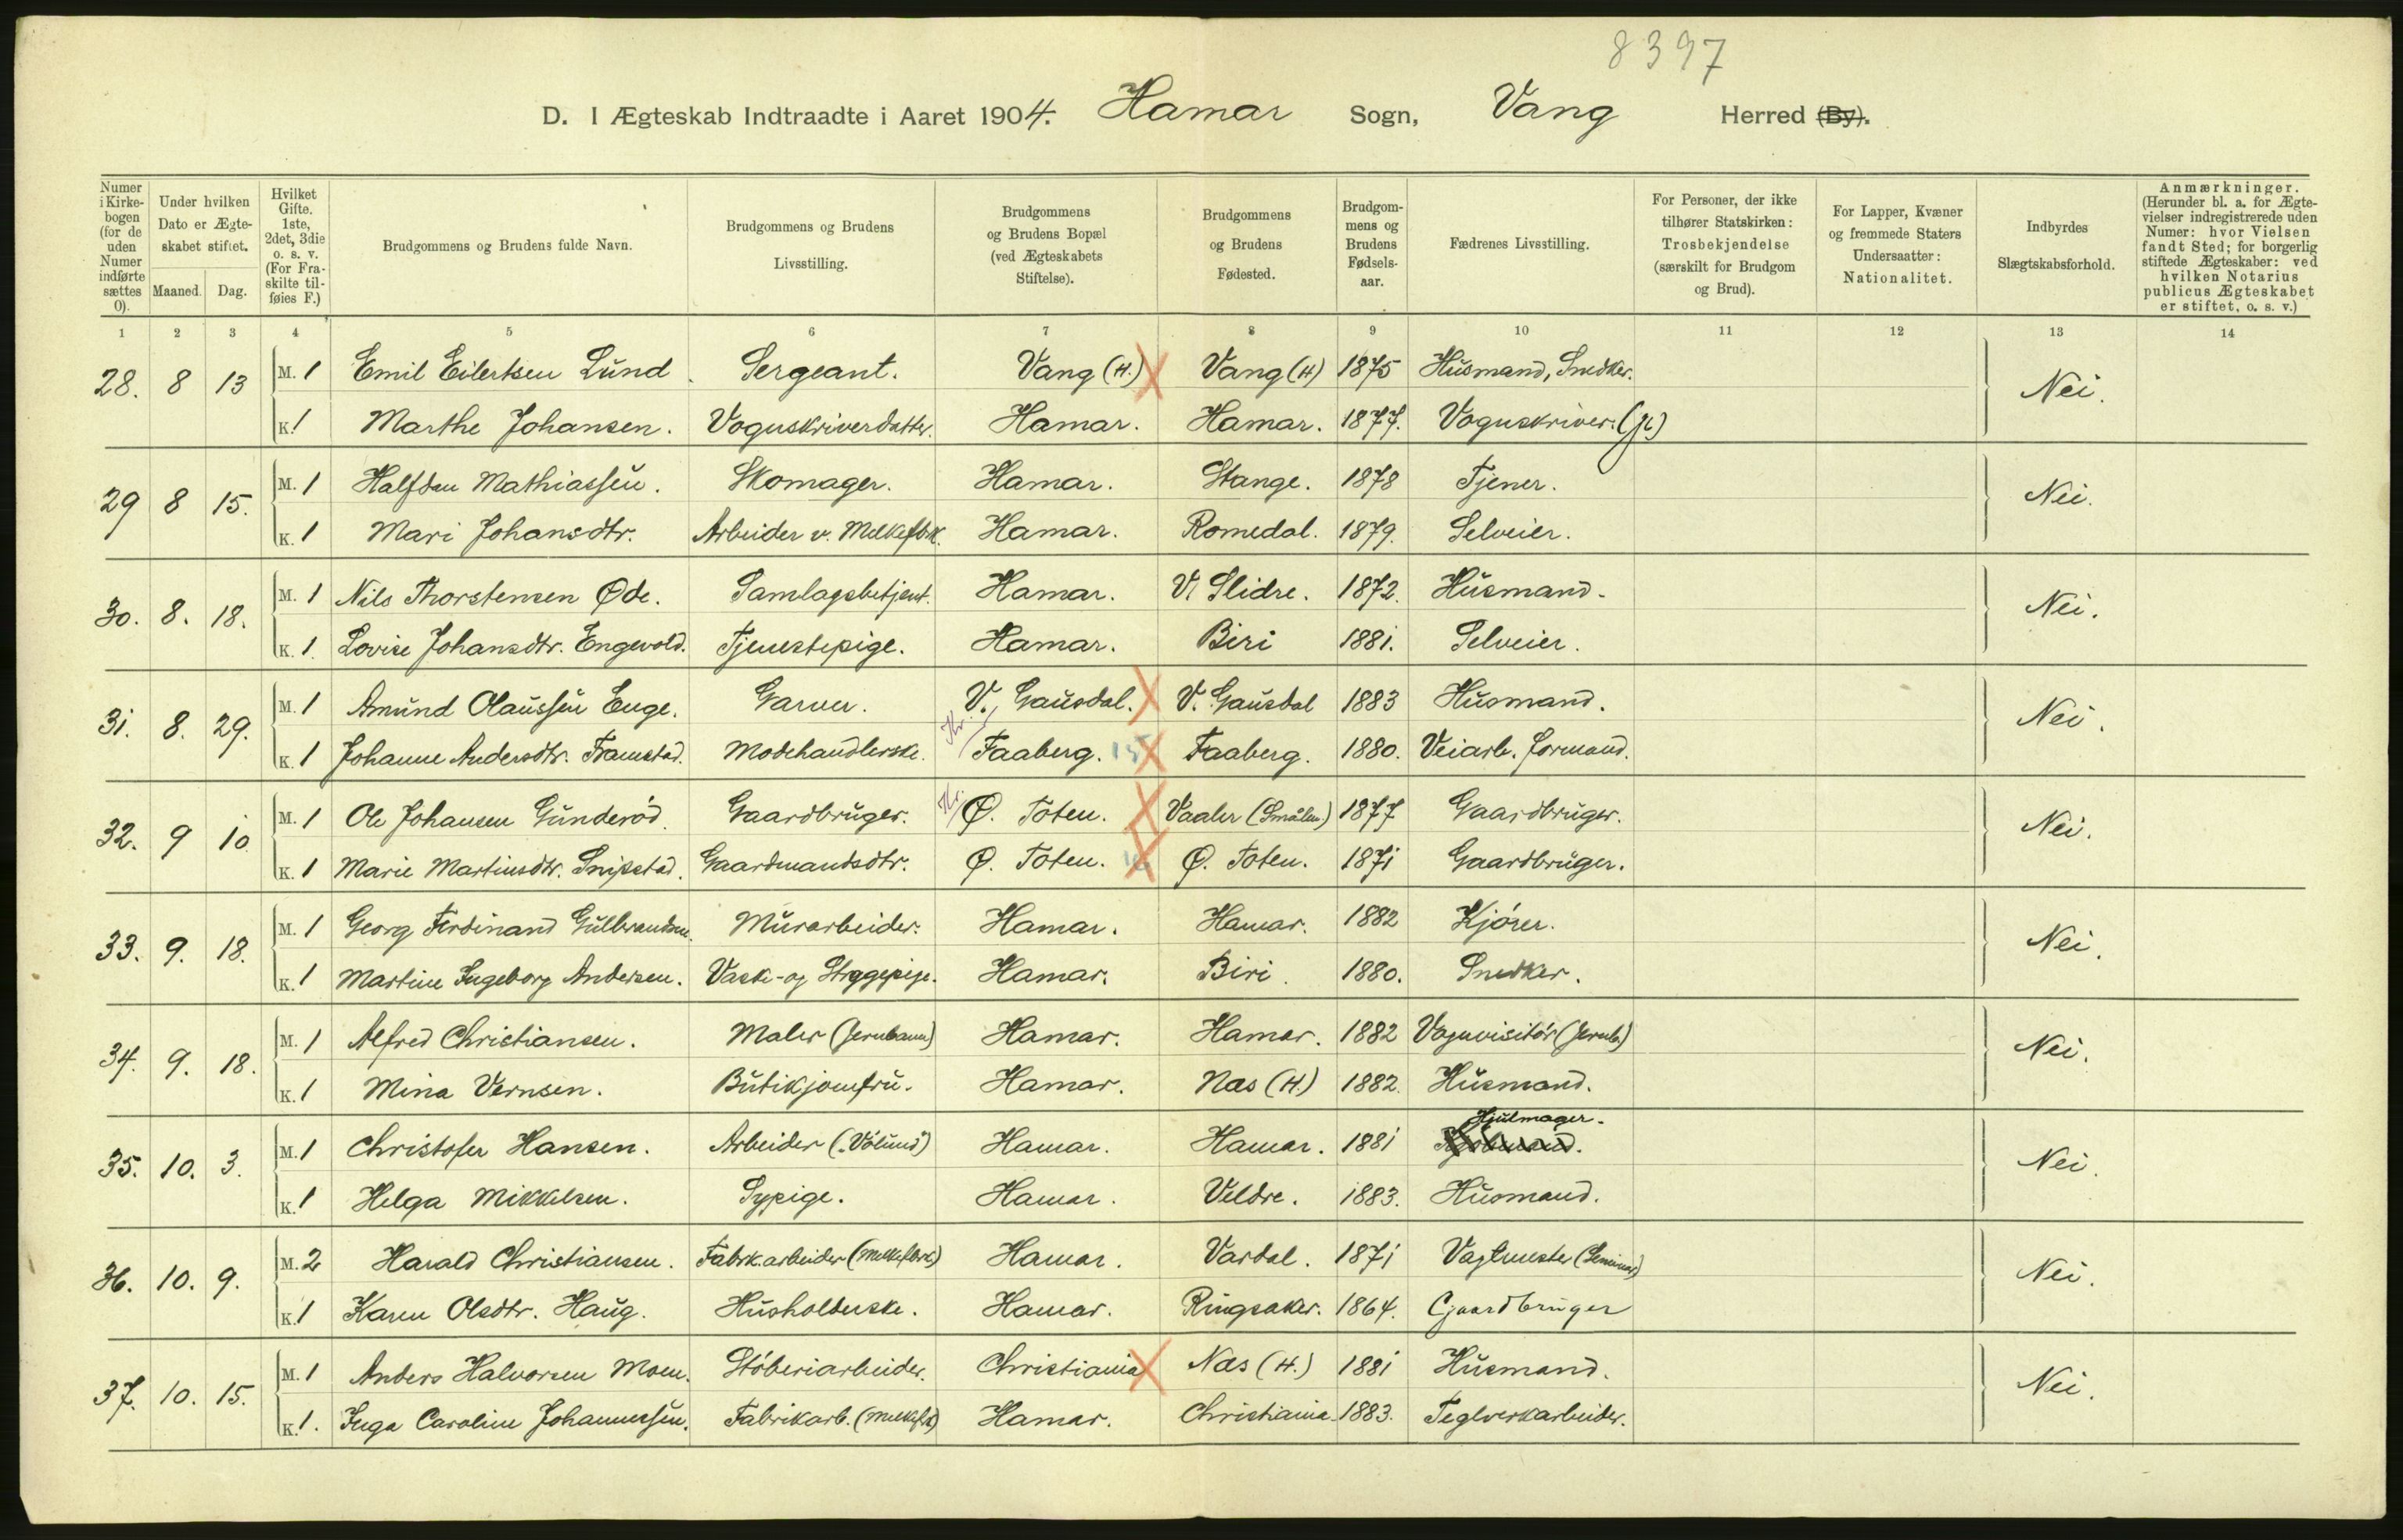 8397
D. I Ægteskab Indtraadte i Aaret 1904. Hamar Sogn, Vang Herred (By).
Numer i Kirkebogen (for de uden Numer indførte sættes 0).
Under hvilken Dato er Ægteskabet stiftet.
Maaned. Dag.
Hvilket Gifte. 1ste, 2det, 3die o. s. v. (For Fraskilte tilføies F.)
Brudgommens og Brudens fulde Navn.
Brudgommens og Brudens Livsstilling.
Brudgommens og Brudens Bopæl (ved Ægteskabets Stiftelse).
Brudgommens og Brudens Fødested.
Brudgommens og Brudens Fødselsaar.
Fædrenes Livsstilling.
For Personer, der ikke tilhører Statskirken: Trosbekjendelse (særskilt for Brudgom og Brud).
For Lapper, Kvæner og fremmede Staters Undersaatter: Nationalitet.
Indbyrdes Slægtskabsforhold.
Anmærkninger. (Herunder bl. a. for Ægtevielser indregistrerede uden Numer: hvor Vielsen fandt Sted; for borgerlig stiftede Ægteskaber: ved hvilken Notarius publicus Ægteskabet er stiftet, o. s. v.)
1 2 3 4 5 6 7 8 9 10 11 12 13 14
28. 8 13 M. 1 Emil Eilertsen Lund. Sergeant. Vang (H.) Vang (H) 1875 Husmand, Snedker. Nei.
K. 1 Marthe Johansen. Vognskriverdatter. Hamar. Hamar. 1877. Vognskriver.
29 8 15. M. 1 Halfdan Mathiassen. Skomager. Hamar. Stange. 1878 Tjener. Nei.
K. 1 Mari Johansdtr. Arbeider v. Melkefbrk. Hamar. Romedal. 1879. Selveier.
30. 8. 18. M. 1 Nils Thorstensen Øde. Samlagsbetjent. Hamar. V. Slidre. 1872. Husmand. Nei.
K. 1 Lovise Johansdtr. Engevold. Tjenestepige. Hamar. Biri 1881. Selveier.
31. 8. 29. M. 1 Amund Olaussen Enge. Garver. V. Gausdal. V. Gausdal 1883 Husmand. Nei.
K. 1 Johanne Andersdtr. Framstad. Modehandlerske. Kr. Faaberg. 15 Faaberg. 1880. Veiarb. formand.
32. 9 10 M. 1 Ole Johansen Gunderød. Gaardbruger. Kr. Ø. Toten. Vaaler (Smålen.) 1877 Gaardbruger. Nei.
K. 1 Marie Martinsdtr. Snipstad. Gaardmandsdtr. Ø. Toten. Ø. Toten. 1871 Gaardbruger.
33. 9. 18. M. 1 Georg Ferdinand Gulbrandsen. Murarbeider. Hamar. Hamar. 1882 Kjører. Nei.
K. 1 Martine Ingeborg Andersen. Vaske- og Strygepige. Hamar. Biri. 1880. Snedker.
34. 9. 18. M. 1 Alfred Christiansen. Maler (Jernbanen) Hamar. Hamar. 1882 Vognvisitør (Jernb.) Nei.
K. 1 Mina Vernsen. Butikjomfru. Hamar. Næs (H.) 1882. Husmand.
35. 10. 3. M. 1 Christofer Hansen. Arbeider ("Vølund") Hamar. Hamar. 1881 Hjulmager. Nei.
K. 1 Helga Mikkelsen. Sypige. Hamar. Veldre. 1883. Husmand.
36. 10. 9. M. 2 Harald Christiansen. Fabrk.arbeider (Melkefbrk) Hamar. Vardal. 1871 Vagtmester (Seminar) Nei.
K. 1 Karen Olsdtr. Haug. Husholderske. Hamar. Ringsaker. 1864. Gaardbruger
37. 10. 15. M. 1 Anders Halvorsen Moen. Støberiarbeider. Christiania Næs (H.) 1881 Husmand. Nei.
K. 1. Inga Caroline Johannessen. Fabrikarb. (Melkefbk) Hamar. Christiania. 1883. Teglverkarbeider.